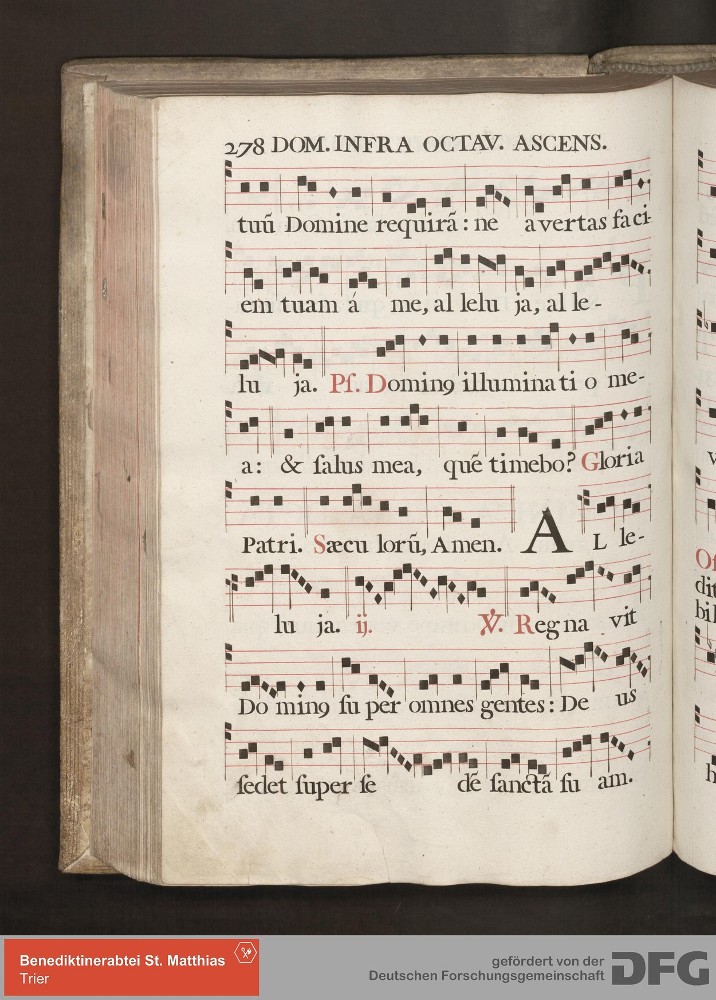 278 DOM. INFRA OCTAV. ASCENS.
tuū Domine requirā: ne avertas faci-
em tuam á me, al lelu ja, al le-
lu ja. Pſ. Dominꝯ illumina ti o me-
a: & ſalus mea, quē timebo? Gloria
Patri. Sæcu lorū, Amen. A L le-
lu ja. ij. ℣. Regna vit
Do minꝯ ſu per omnes gentes: De us
ſedet ſuper ſe dē ſanctā ſu am.
Benediktinerabtei St. Matthias
Trier
gefördert von der
Deutschen Forschungsgemeinschaft
DFG